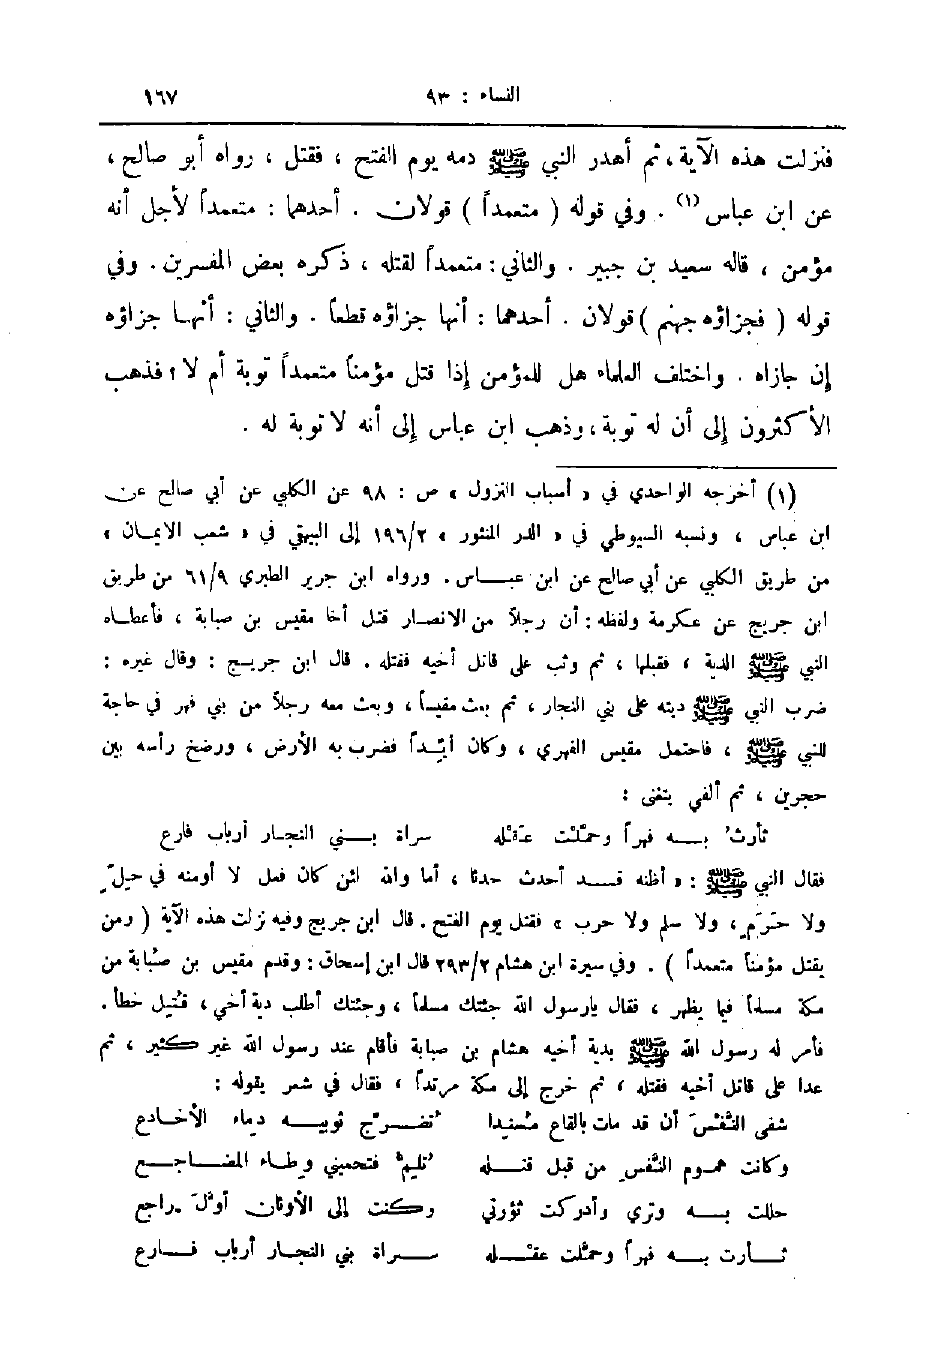 النساء : ٩٣ ١٦٧
فنزلت هذه الآية ، ثم أهدر النبي ﷺ دمه يوم الفتح ، فقتل ، رواه أبو صالح ،
عن ابن عباس (١) . وفي قوله ( متعمداً ) قولان . أحدهما : متعمداً لأجل أنه
مؤمن ، قاله سعيد بن جبير . والثاني : متعمداً لقتله ، ذكره بعض المفسرين . وفي
قوله ( فجزاؤه جهنم ) قولان . أحدهما : أنها جزاؤه قطعاً . والثاني : أنها جزاؤه
إن جازاه . واختلف العلماء هل للمؤمن إذا قتل مؤمناً متعمداً توبة أم لا ؟ فذهب
الأكثرون إلى أن له توبة ، وذهب ابن عباس إلى أنه لا توبة له .
(١) أخرجه الواحدي في « أسباب النزول » ص : ٩٨ عن الكلبي عن أبي صالح عن
ابن عباس ، ونسبه السيوطي في « الدر المنثور » ١٩٦/٢ إلى البيهقي في « شعب الايمان »
من طريق الكلبي عن أبي صالح عن ابن عباس . ورواه ابن جرير الطبري ٦١/٩ من طريق
ابن جريج عن عكرمة ولفظه : أن رجلاً من الانصار قتل أخا مقيس بن صبابة ، فأعطاه
النبي ﷺ الدية ، فقبلها ، ثم وثب على قاتل أخيه فقتله . قال ابن جريج : وقال غيره :
ضرب النبي ﷺ ديته على بني النجار ، ثم بعث مقيساً ، وبعث معه رجلاً من بني فهر في حاجة
للنبي ﷺ ، فاحتمل مقيس الفهري ، وكان أيِّداً فضرب به الأرض ، ورضخ رأسه بين
حجرين ، ثم ألفي يتغنى :
ثأرتُ به فهراً وحمَّلت عقله سراة بني النجار أرباب فارع
فقال النبي ﷺ : « أظنه قد أحدث حدثا ، أما والله لئن كان فعل لا أومنه في حِلٍّ
ولا حَرَمٍ ، ولا سلم ولا حرب » فقتل يوم الفتح . قال ابن جريج وفيه نزلت هذه الآية ( ومن
يقتل مؤمناً متعمداً ) . وفي سيرة ابن هشام ٢٩٣/٢ قال ابن إسحاق : وقدم مقيس بن صُبابة من
مكة مسلماً فيما يظهر ، فقال يارسول الله جئتك مسلماً ، وجئتك أطلب دية أخي ، قُتِل خطأ .
فأمر له رسول الله ﷺ بدية أخيه هشام بن صبابة فأقام عند رسول الله غير كثير ، ثم
عدا على قاتل أخيه فقتله ، ثم خرج إلى مكة مرتداً ، فقال في شعر يقوله :
شفى النَّفْسَ أن قد مات بالقاع مُسْندا تُضَرِّج ثوبيه دماء الأخادع
وكانت هموم النَّفس من قبل قتله تُلِمُّ فتحميني وطاء المضاجع
حللت به وتري وأدركت ثؤرتي وكنت إلى الأوثان أوَّلَ راجع
ثأرت به فهراً وحمَّلت عقله سراة بني النجار أرباب فارع